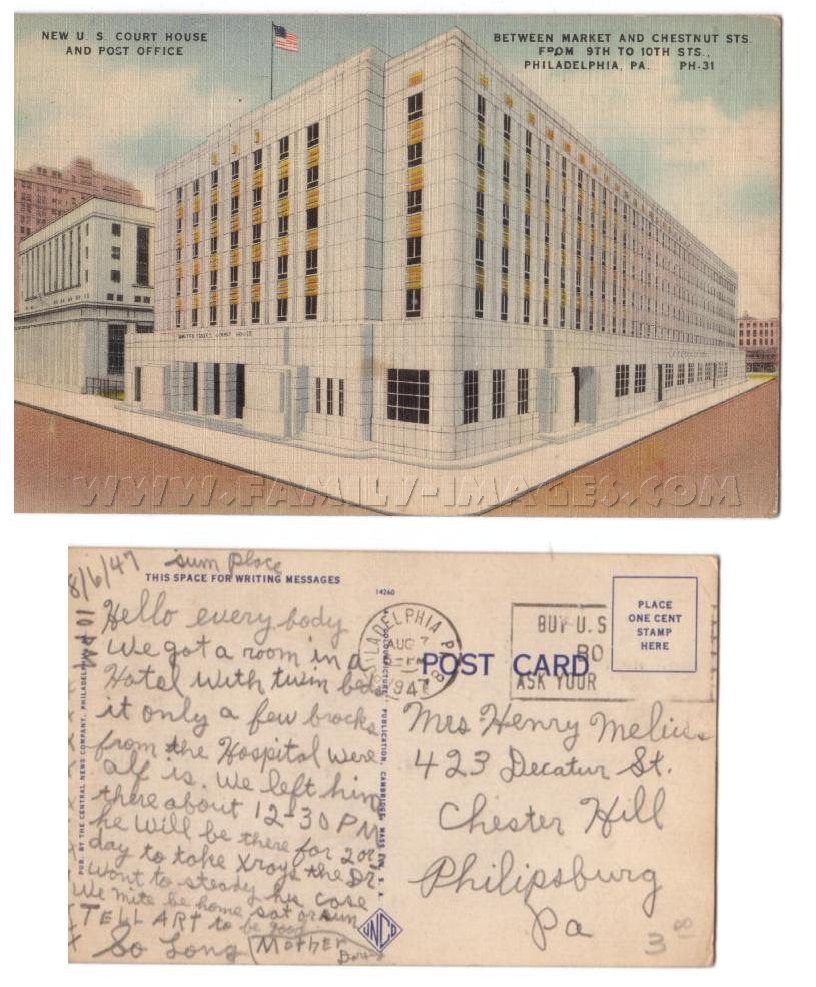 NEW U. S. COURT HOUSE
AND POST OFFICE
BETWEEN MARKET AND CHESTNUT STS.
FROM 9TH TO 10TH STS.,
PHILADELPHIA, PA. PH-31
UNITED STATES COURT HOUSE
WWW.FAMILY-IMAGES.COM
8/6/47
10 PM
sum place
THIS SPACE FOR WRITING MESSAGES
14260
Hello every body
We got a room in a
Hotel with twin beds
it only a few brocks
from the Hospital were
alf is. We left him
there about 12-30 PM
he will be there for 2 or 3
day to take xrays the Dr
want to steady his case
We mite be home sat or sun
TELL ART to be good
So Long Mother
PUB. BY THE CENTRAL NEWS COMPANY, PHILADELPHIA
PUBLICATION, CAMBRIDGE, MASS., U. S. A.
PHILADELPHIA PA
AUG 7
1947
BUY U.S
BO
ASK YOUR
POST CARD
PLACE
ONE CENT
STAMP
HERE
Mrs Henry
423 Decatur St.
Chester Hill
Philipsburg
Pa
3 00